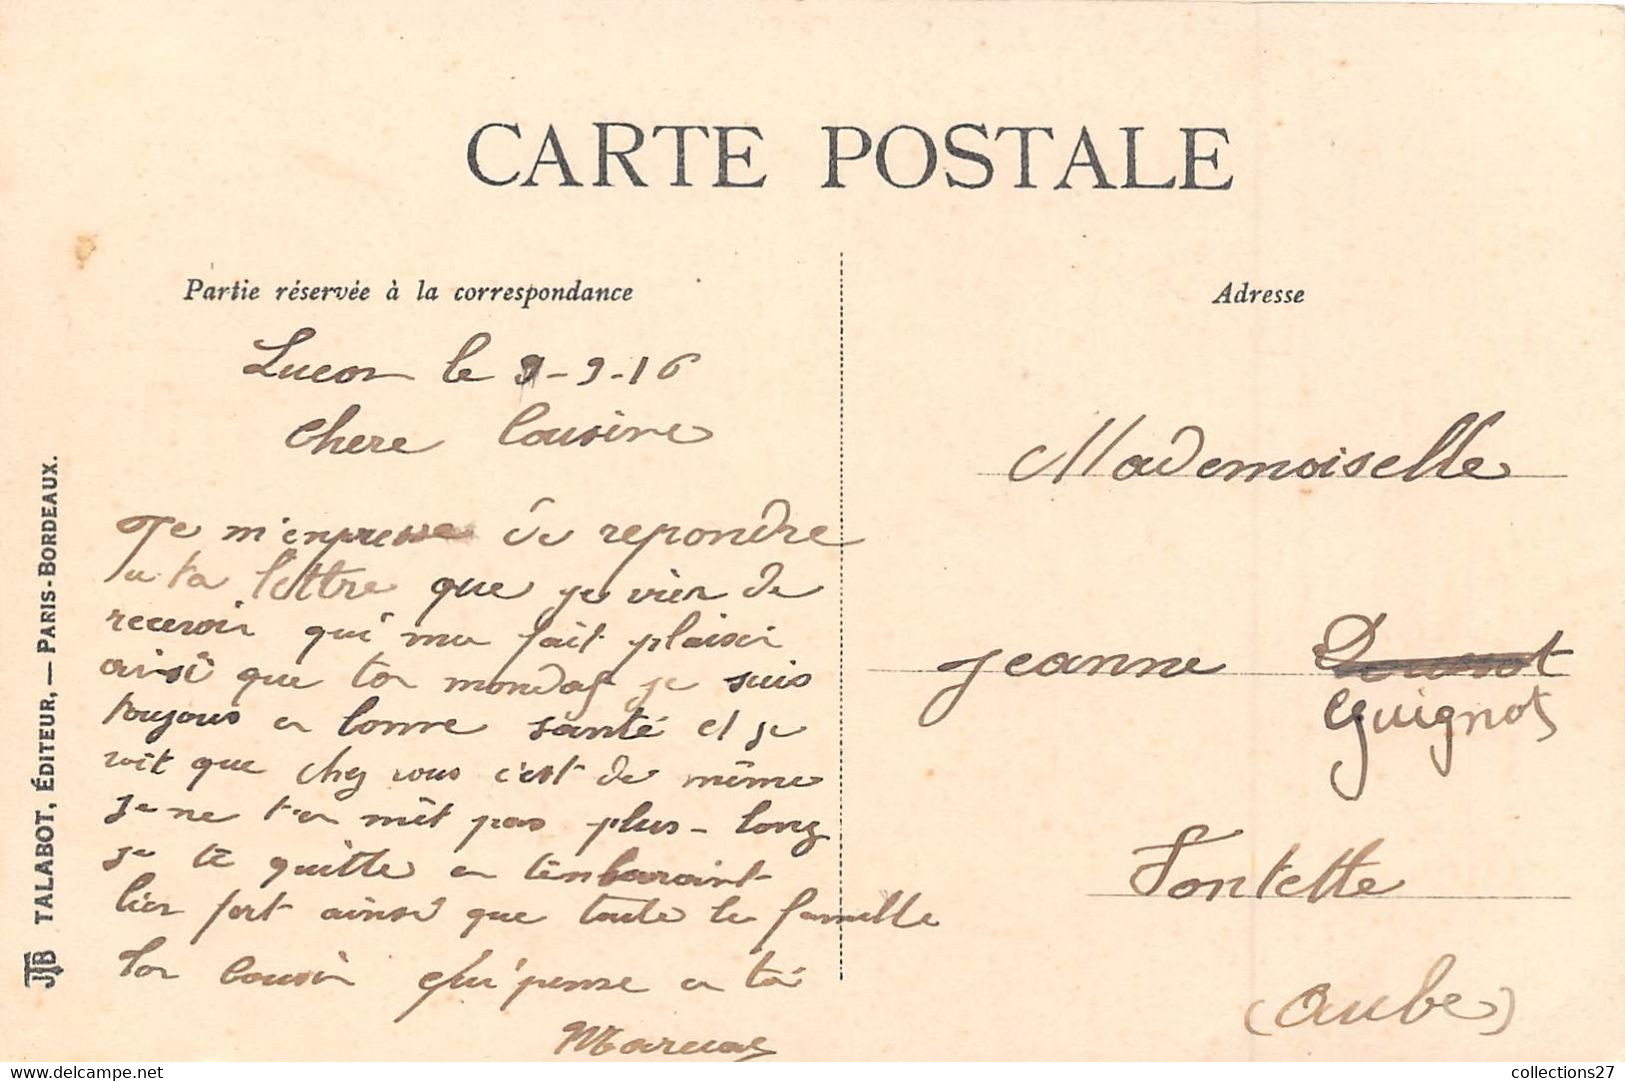 CARTE POSTALE
Partie réservée à la correspondance
Lucon le 9-9-16
Chere Cousine
Je m'enpresse de repondre
a ta lettre que je vien de
recevoir qui ma fait plaisir
ainsi que ton mondat je suis
toujours en bonne santé et je
voit que chez vous c'est de même
je ne t'en mèt pas plus-long
je te quitte en t'enbaraint
bien fort ainsi que toute la famille
Ton Cousin qui'pense a toi
Adresse
Mademoiselle
Jeanne
Guignot
Fontette
(Aube)
JTB TALABOT, ÉDITEUR, — PARIS-BORDEAUX.
collections27